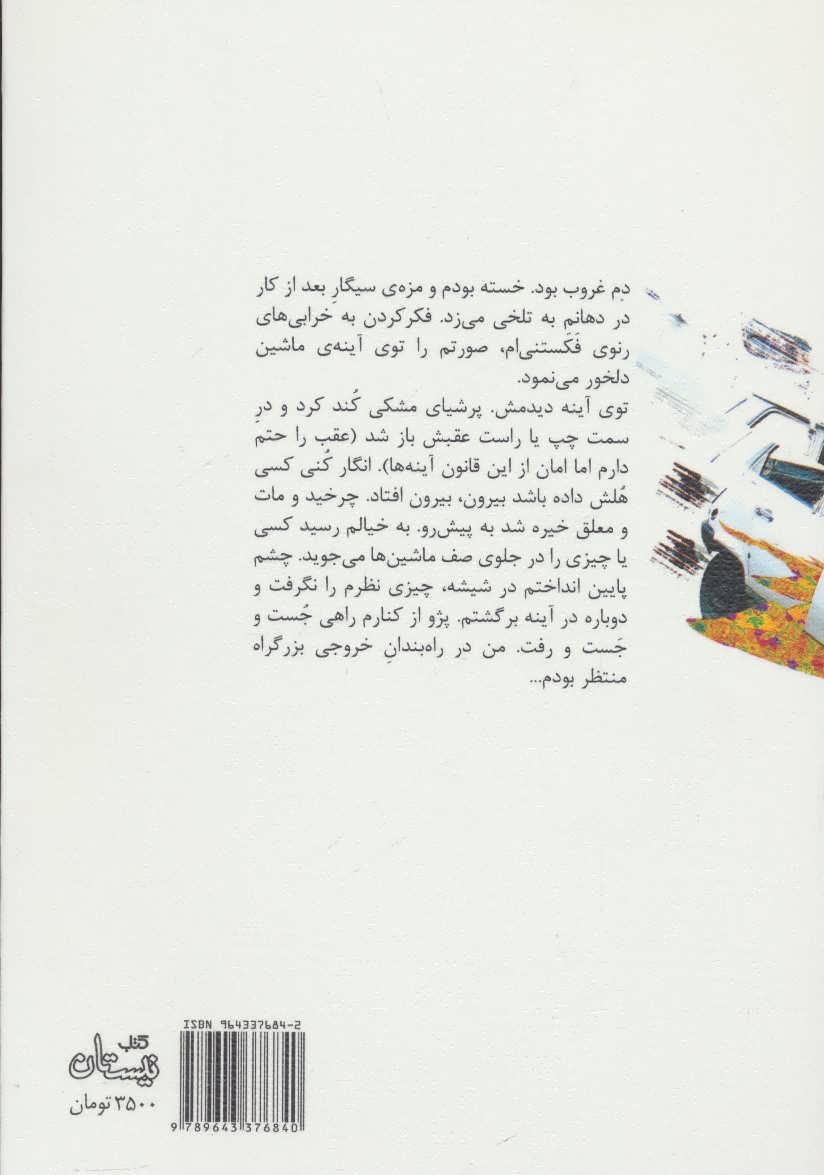 دم غروب بود. خسته بودم و مزه‌ی سیگارِ بعد از کار
در دهانم به تلخی می‌زد. فکرکردن به خرابی‌های
رنوی فَکَستنی‌ام، صورتم را توی آینه‌ی ماشین
دلخور می‌نمود.
توی آینه دیدمش. پرشیای مشکی کُند کرد و درِ
سمت چپ یا راست عقبش باز شد (عقب را حتم
دارم اما امان از این قانون آینه‌ها). انگار کُنی کسی
هُلش داده باشد بیرون، بیرون افتاد. چرخید و مات
و معلق خیره شد به پیش‌رو. به خیالم رسید کسی
یا چیزی را در جلوی صف ماشین‌ها می‌جوید. چشم
پایین انداختم در شیشه، چیزی نظرم را نگرفت و
دوباره در آینه برگشتم. پژو از کنارم راهی جُست و
جَست و رفت. من در راه‌بندانِ خروجی بزرگراه
منتظر بودم...
ISBN 964337684-2
9 789643 376840
کتاب
نیستان
۳۵۰۰ تومان